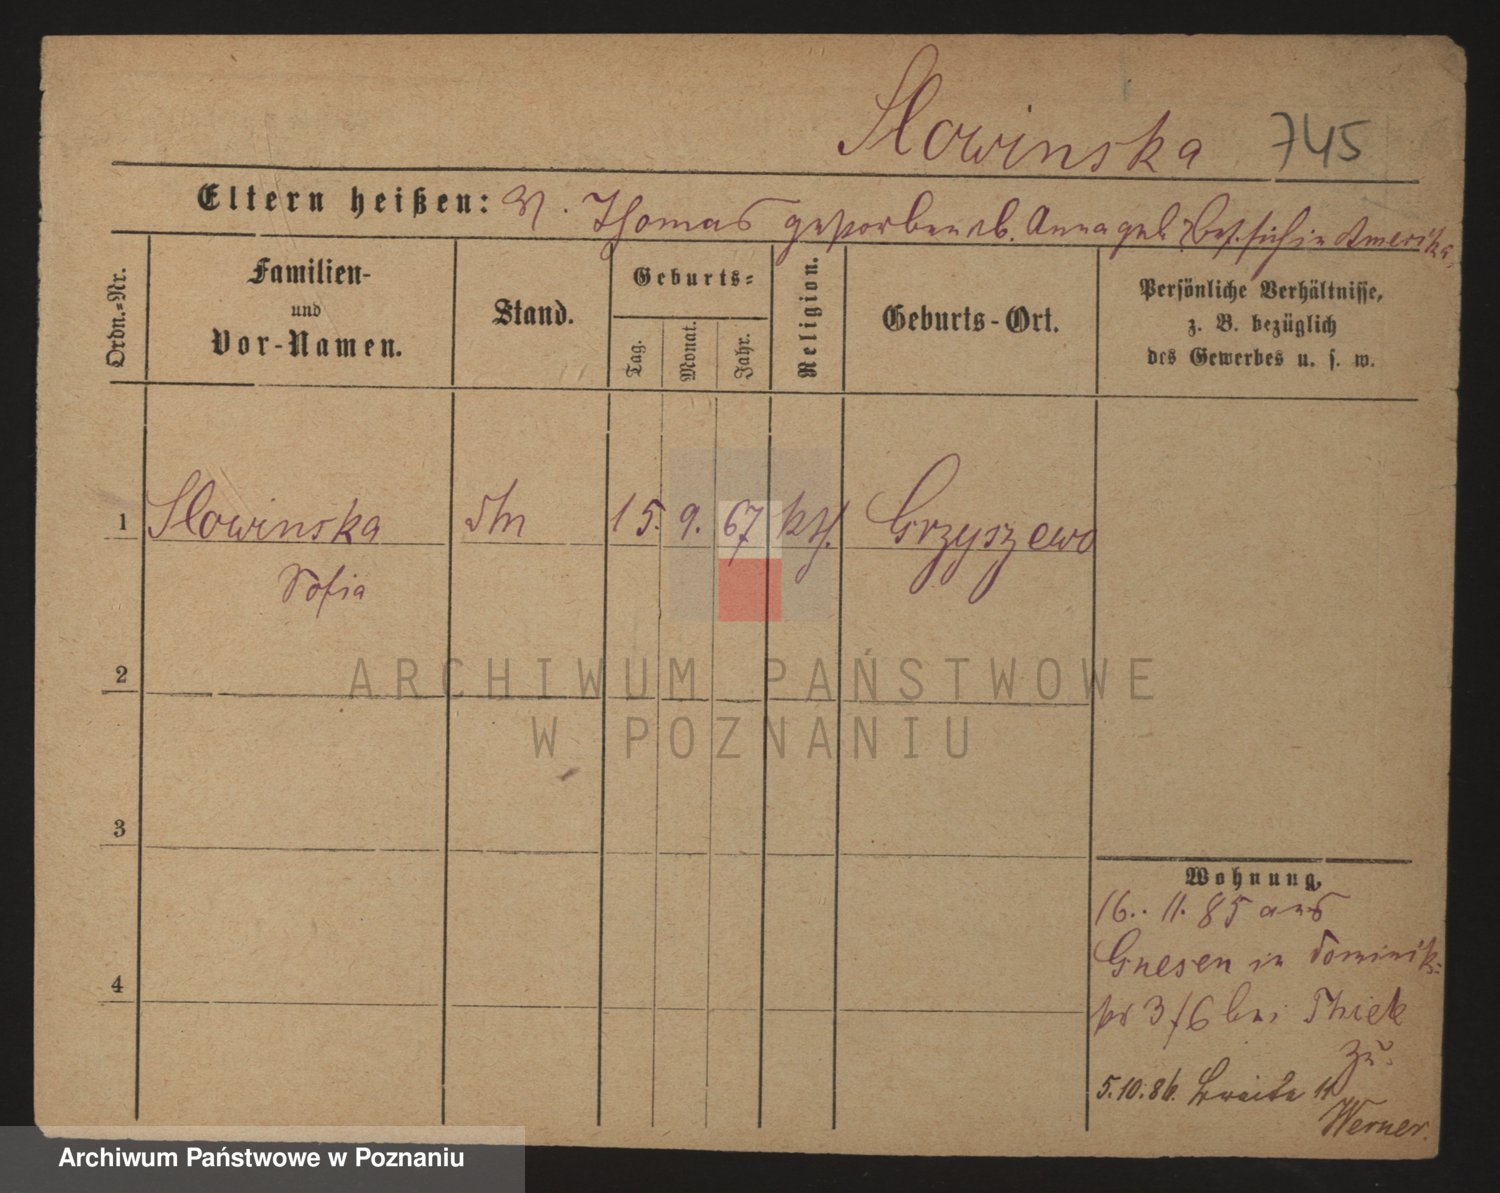 Slowinska 745
Eltern heißen: V. Thomas gestorben u. Anna geb. sich in Amerika.
Ordn.-Nr.
Familien-
und
Vor-Namen.
Stand.
Geburts-
Tag.
Monat.
Jahr.
Religion.
Geburts-Ort.
Persönliche Verhältnisse,
z. B. bezüglich
des Gewerbes u. s. w.
1 Slowinska 15. 9. 67 kth. Grzyszewo
Sofia
2
3
4
ARCHIWUM PAŃSTWOWE
W POZNANIU
Wohnung.
16. 11. 85 aus
Gnesen in Dominik-
str 3/6 bei Thiel
zu.
5.10.86. Breite 11
Werner.
Archiwum Państwowe w Poznaniu